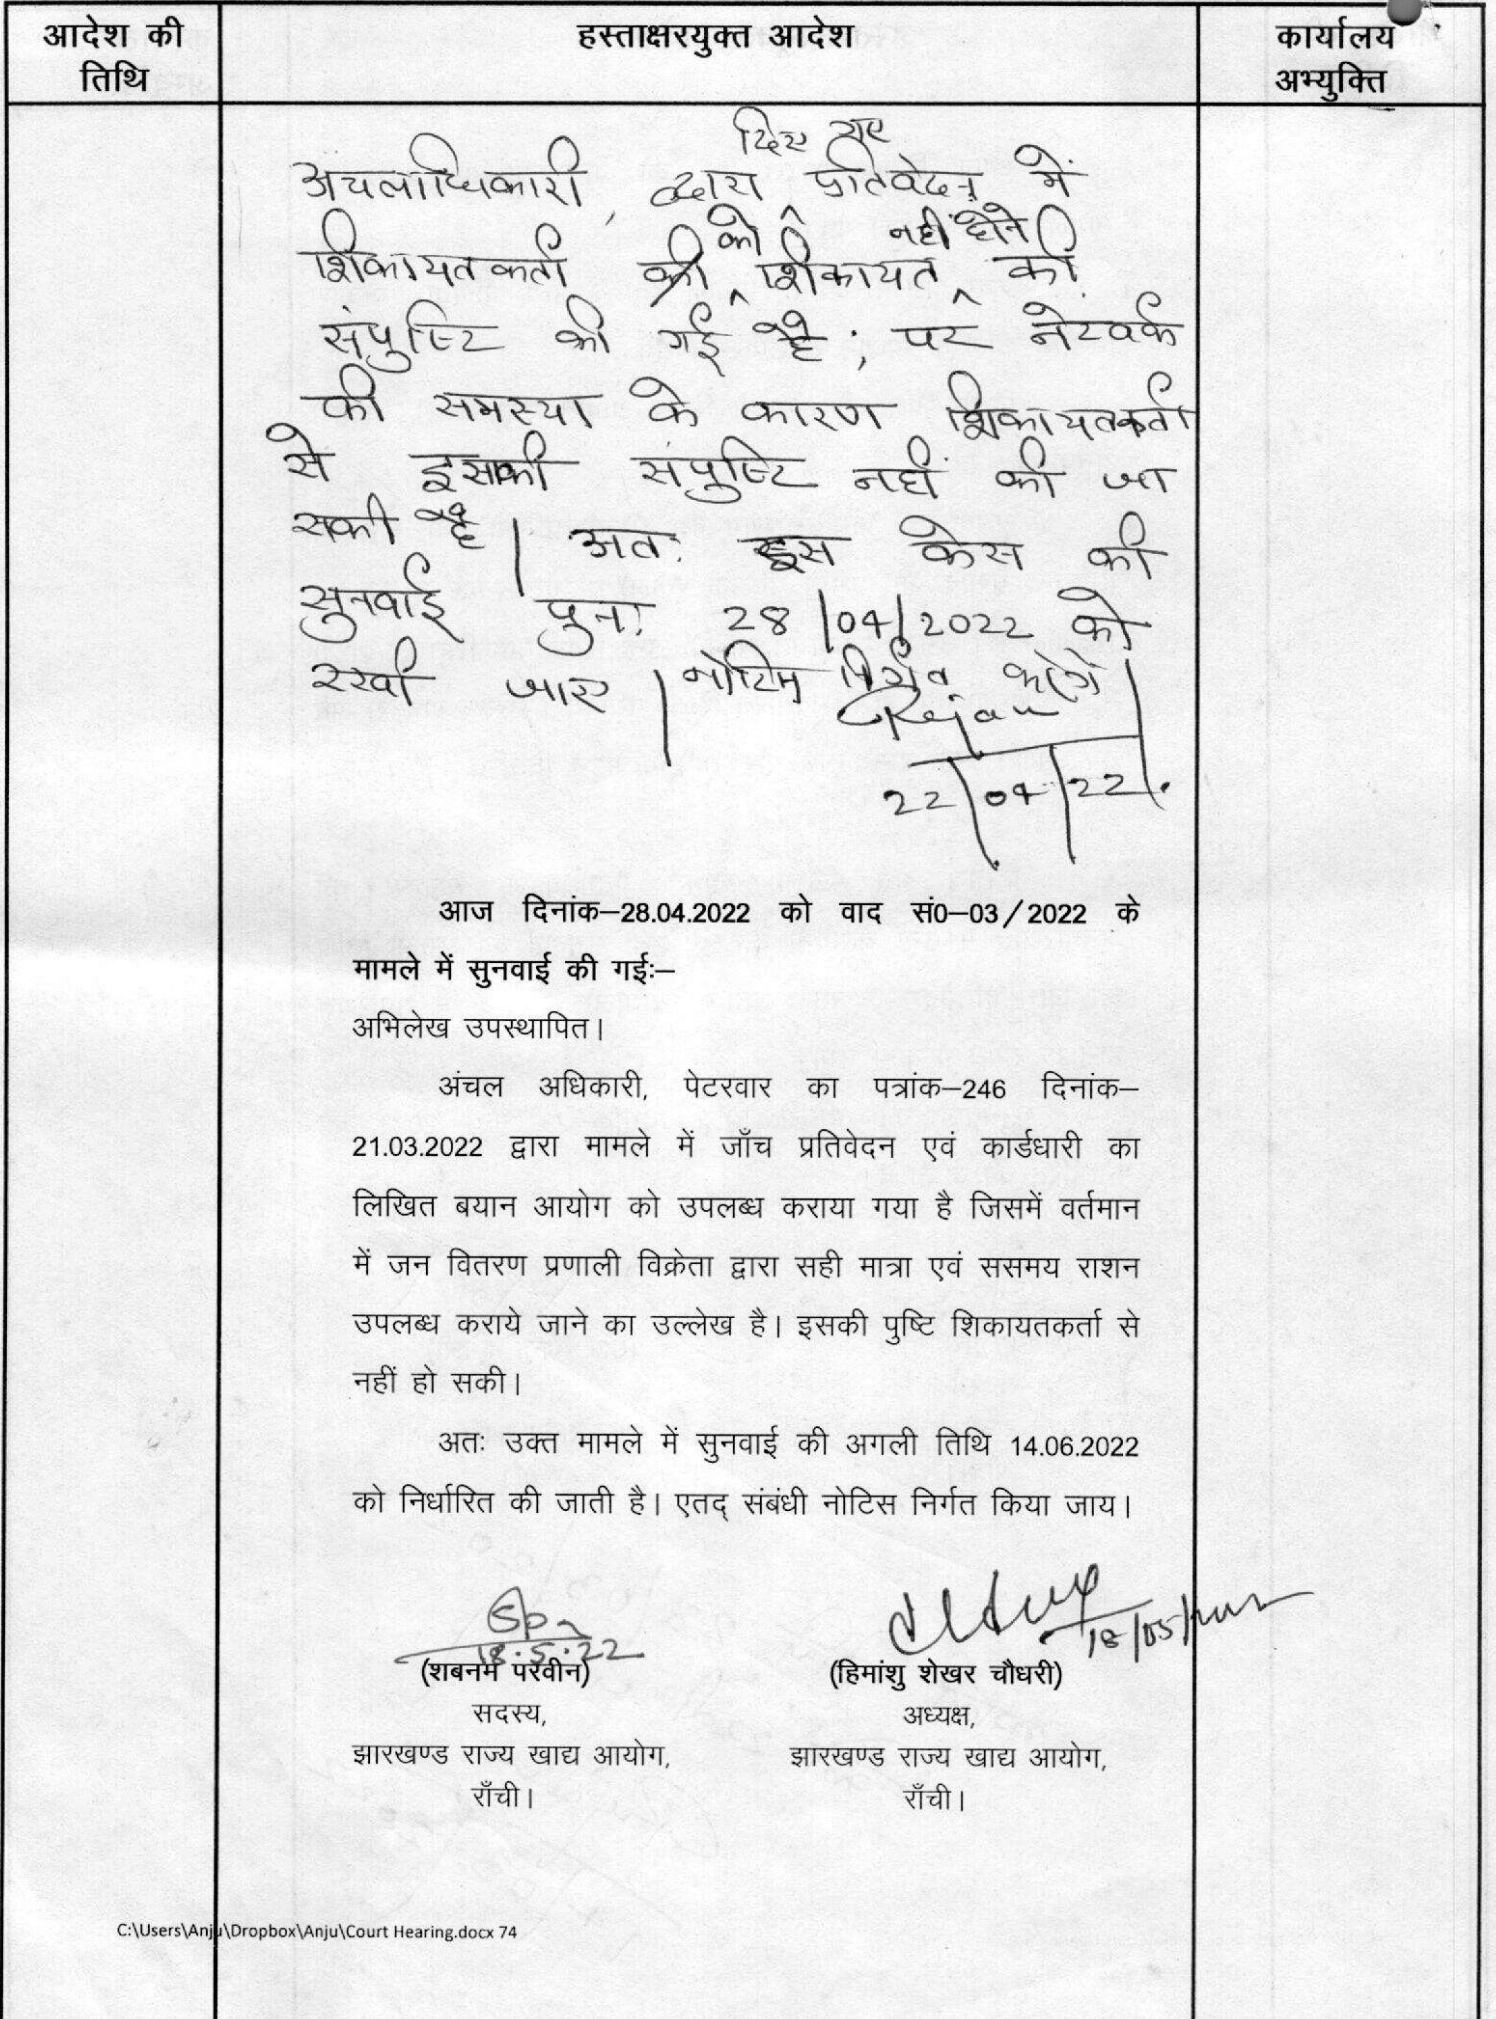 आदेश की तिथि
हस्ताक्षरयुक्त आदेश
कार्यालय अभ्युक्ति
दिए गए
अंचलाधिकारी, द्वारा ^ प्रतिवेदन में
को नहीं होने
शिकायतकर्ता की ^ शिकायत ^ की
संपुष्टि की गई है; पर नेटवर्क
की समस्या के कारण शिकायतकर्ता
से इसकी संपुष्टि नहीं की जा
सकी है। अतः इस केस की
सुनवाई पुनः 28/04/2022 को
रखी जाए। नोटिस निर्गत करेंगे।
22/04/22
आज दिनांक–28.04.2022 को वाद सं0–03/2022 के
मामले में सुनवाई की गईः–
अभिलेख उपस्थापित।
अंचल अधिकारी, पेटरवार का पत्रांक–246 दिनांक–
21.03.2022 द्वारा मामले में जाँच प्रतिवेदन एवं कार्डधारी का
लिखित बयान आयोग को उपलब्ध कराया गया है जिसमें वर्तमान
में जन वितरण प्रणाली विक्रेता द्वारा सही मात्रा एवं ससमय राशन
उपलब्ध कराये जाने का उल्लेख है। इसकी पुष्टि शिकायतकर्ता से
नहीं हो सकी।
अतः उक्त मामले में सुनवाई की अगली तिथि 14.06.2022
को निर्धारित की जाती है। एतद् संबंधी नोटिस निर्गत किया जाय।
18.5.22
18/05/2022
(शबनम परवीन)
सदस्य,
झारखण्ड राज्य खाद्य आयोग,
राँची।
(हिमांशु शेखर चौधरी)
अध्यक्ष,
झारखण्ड राज्य खाद्य आयोग,
राँची।
C:\Users\Anju\Dropbox\Anju\Court Hearing.docx 74